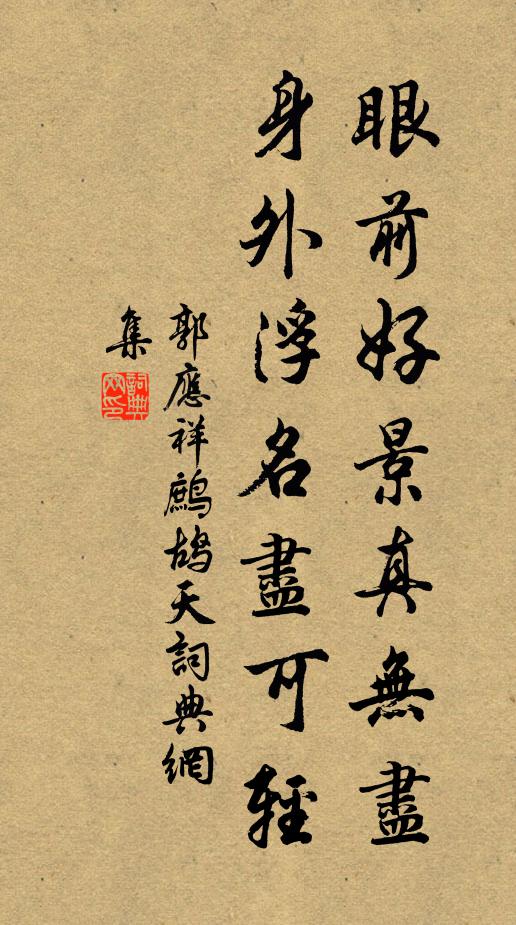 眼前好景真無盡
身外浮名盡可輕
郭應祥鷓鴣天詞典網
集
詞典
網印